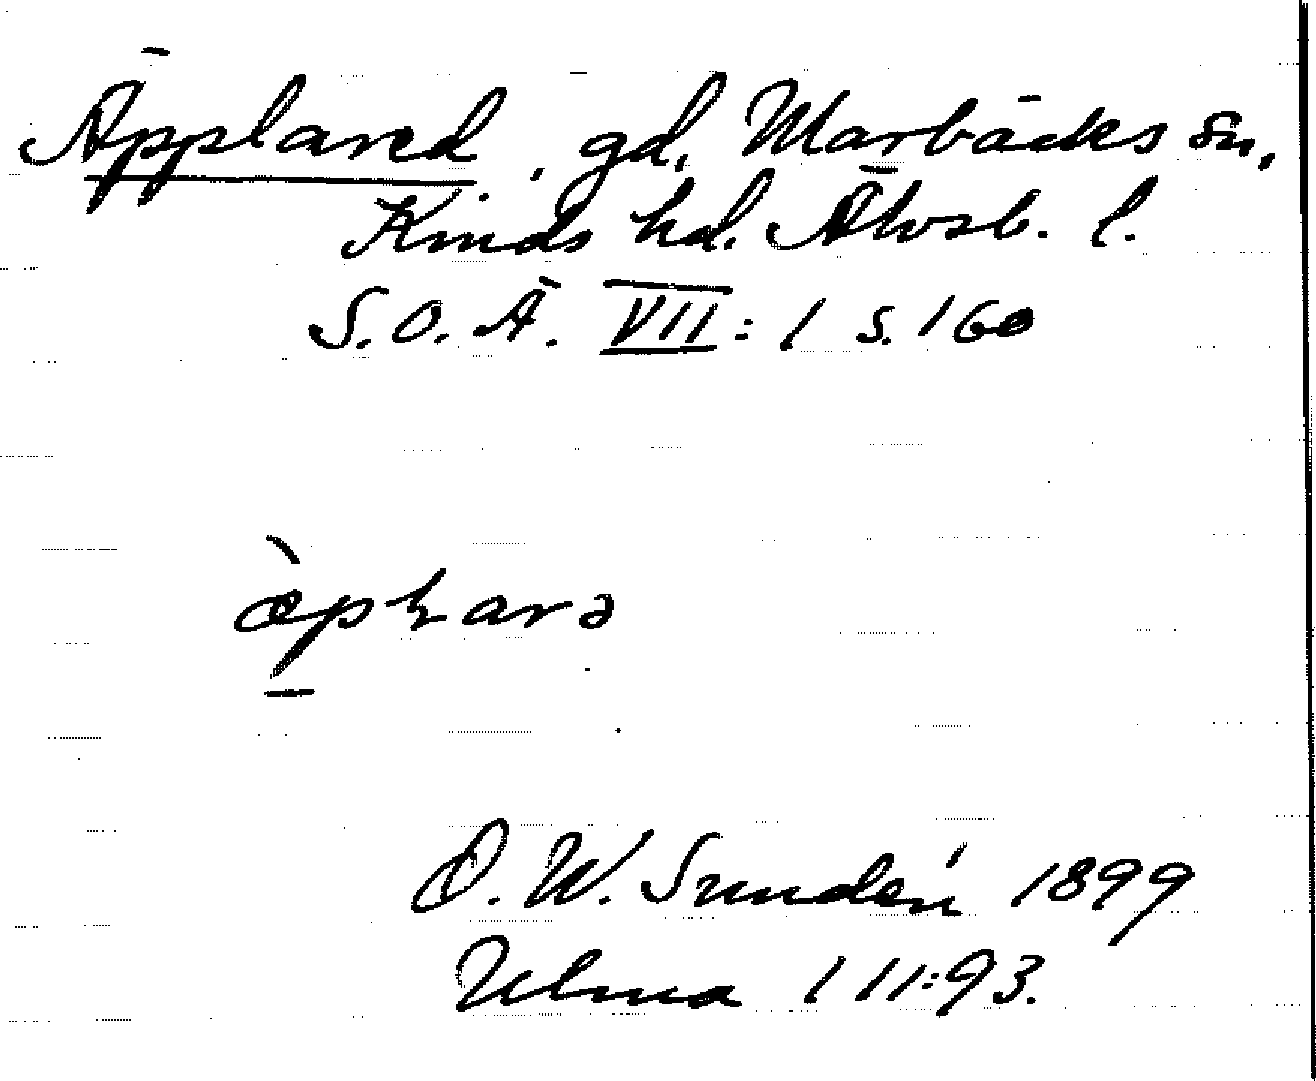 Äpplared, gd, Marbäcks sn,
Kinds hd. Älvsb. l.
S.O.Ä. VII: 1 s. 160
D. W. Sundén 1899
Ulma 111:93.